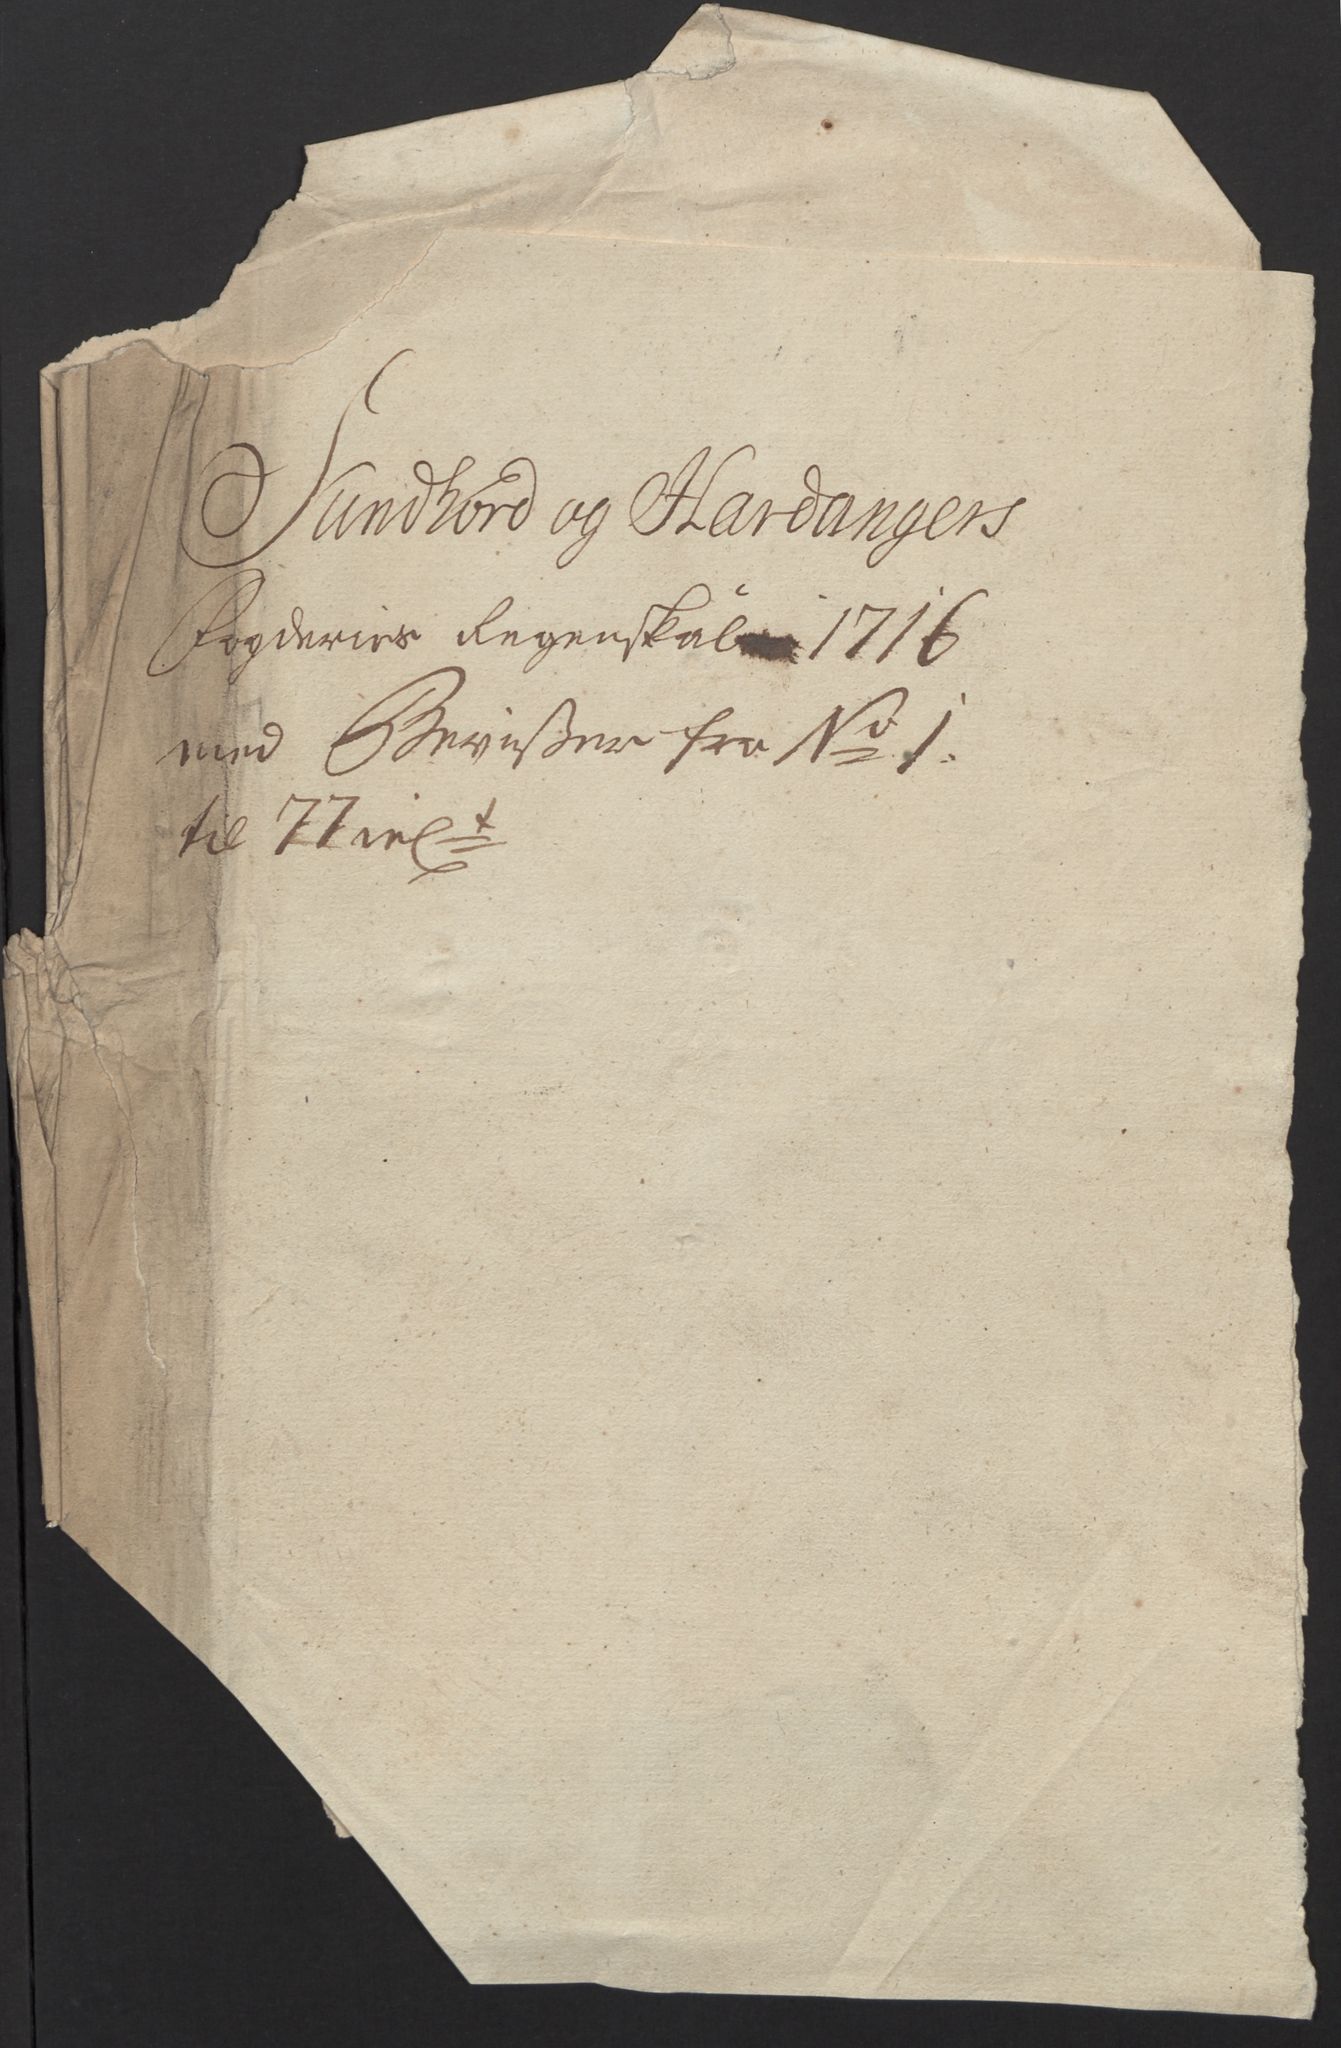 Sundhord og Hardangers
Fogderies Regenskab 1716
med Bevißer fra No 1.
til 77 incl